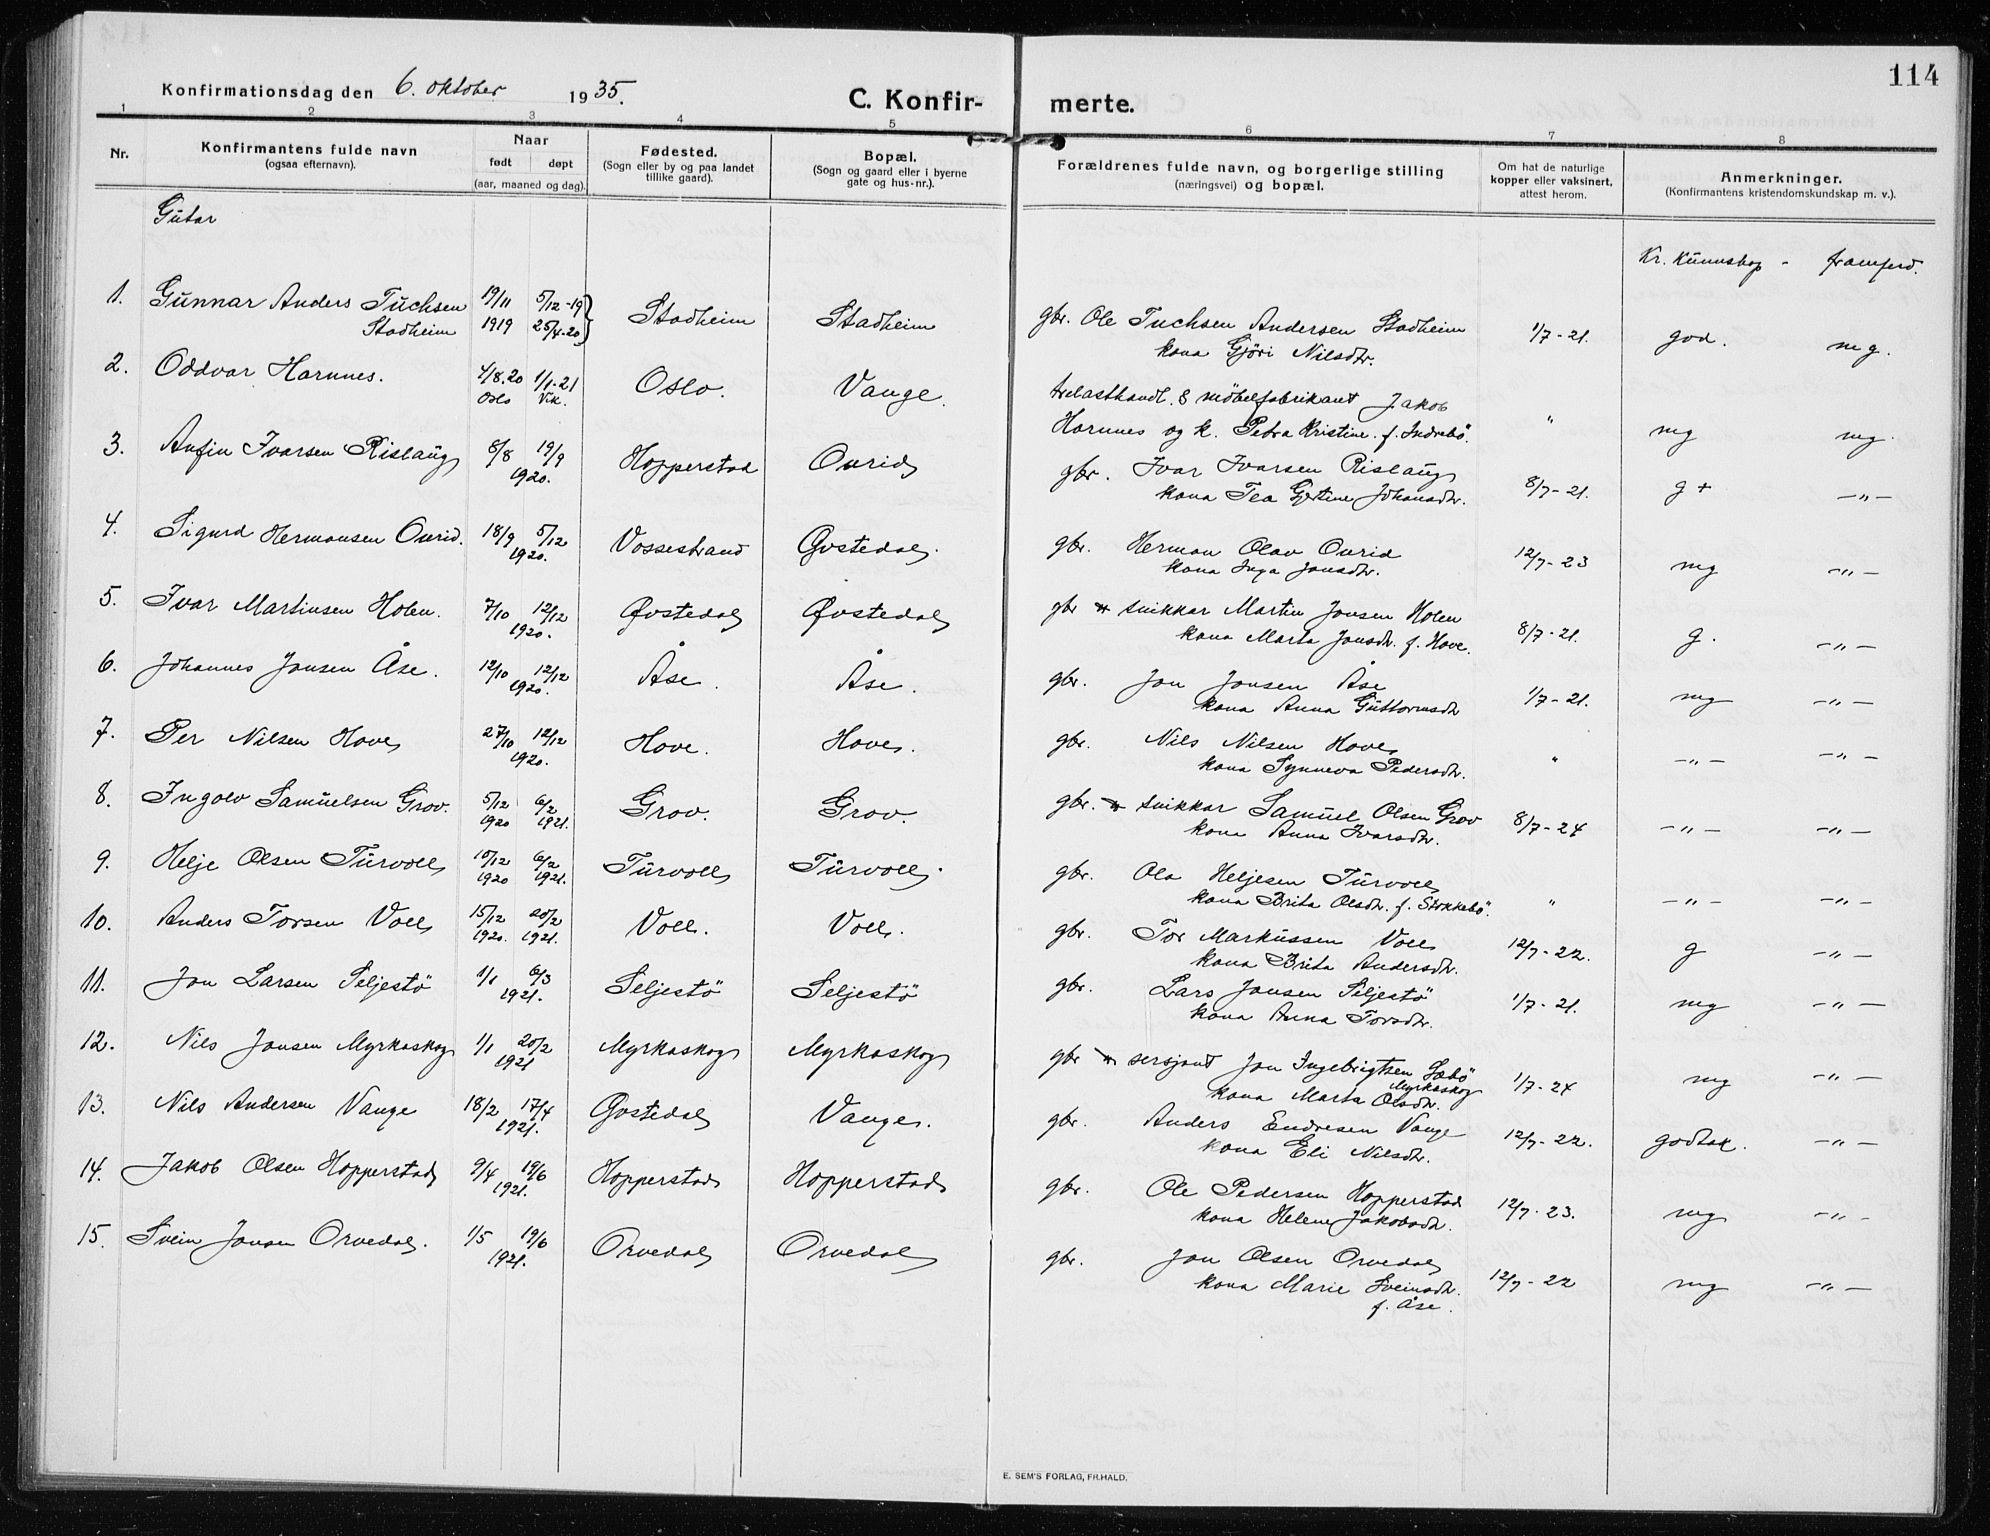 114
Konfirmationsdag den 6. oktober 1935.
C. Konfir- merte.
1 2 3 4 5 6 7 8
Nr.
Konfirmantens fulde navn
(ogsaa efternavn).
Naar
født døpt
(aar, maaned og dag).
Fødested.
(Sogn eller by og paa landet
tillike gaard).
Bopæl.
(Sogn og gaard eller i byerne
gate og hus-nr.).
Forældrenes fulde navn, og borgerlige stilling
(næringsvei) og bopæl.
Om hat de naturlige
kopper eller vaksinert,
attest herom.
Anmerkninger.
(Konfirmantens kristendomskundskap m. v.).
Gutar
Kr. kunnskap - framferd.
1. Gunnar Anders Tuchsen 19/11 5/12-19 Stadheim Stadheim gbr. Ole Tuchsen Andersen Stadheim 1/7-21. god. mg.
Stadheim 1919 25/4.20 kona Gjöri Nilsdtr.
2. Oddvar Hamnes. 4/8.20 1/1-21 Oslo. Vange. trelasthandl. & möbelfabrikant Jakob " mg mg.
Oslo Vik. Hamnes og k. Petra Kristine f. Indrebö.
3. Anfin Ivarsen Rislaug 8/8 19/9 Hopperstad Ovrid gbr. Ivar Ivarsen Rislaug 8/7-21. g+ —"—
1920. kona Tea Gjertine Johansdtr.
4. Sigurd Hermansen Ovrid. 18/9 5/12 Vossestrand Øvstedal. gbr. Herman Olav Ovrid 12/7-23 mg —"—
1920. kona Inga Jonsdtr.
5. Ivar Martinsen Holen. 7/10 12/12 Øvstedal Øvstedal gbr snikkar Martin Jonsen Holen 8/7-21. g. —"—
1920. kona Marta Jonsdtr. f. Hove.
6. Johannes Jonsen Åse. 12/10 12/12 Åse. Åse. gbr. Jon Jonsen Åse 1/7-21. mg —"—
1920. kona Anna Guttormsdtr
7. Per Nilsen Hove 27/10 12/12 Hove. Hove. gbr. Nils Nilsen Hove " —"— —"—
1920. kona Synneva Pedersdtr.
8. Ingolv Samuelsen Grov. 5/12 6/2 Grov. Grov. gbr. snikkar Samuel Olsen Grov 8/7-24 —"— —"—
1920 1921. kona Anna Ivarsdtr.
9. Helje Olsen Turvoll 10/12 6/2 Turvoll Turvoll. gbr. Ola Heljesen Turvoll " —"— —"—
1920 1921. kona Brita Olsdtr. f. Stokkebö.
10. Anders Torsen Voll 15/12 20/2 Voll. Voll. gbr. Tor Markussen Voll 12/7-22. g —"—
1920. 1921. kona Brita Andersdtr.
11. Jon Larsen Seljestö 1/1 6/3 Seljestö Seljestö gbr. Lars Jonsen Seljestö 1/7-21. mg —"—
1921. kona Anna Torsdtr.
12. Nils Jonsen Myrkaskog 1/1 20/2 Myrkaskog Myrkaskog gbr sersjant Jon Ingebrigtsen Sæbö 1/7-24 mg —"—
1921 Myrkaskog
kona Marta Olsdtr.
13. Nils Andersen Vange 18/2 17/4 Øvstedal Vange. gbr. Anders Endresen Vange 12/7-22. godtak. —"—
1921. kona Eli Nilsdtr.
14. Jakob Olsen Hopperstad 9/4 19/6 Hopperstad Hopperstad gbr. Ole Pedersen Hopperstad 12/7-23. mg —"—
1921. kona Helene Jakobsdtr.
15. Svein Jonsen Orvedal. 1/5 19/6 Orvedal Orvedal gbr. Jon Olsen Orvedal 12/7-22 mg —"—
1921. kona Marie Sveinsdtr.
f. Åse.
E. SEM'S FORLAG, FR.HALD.